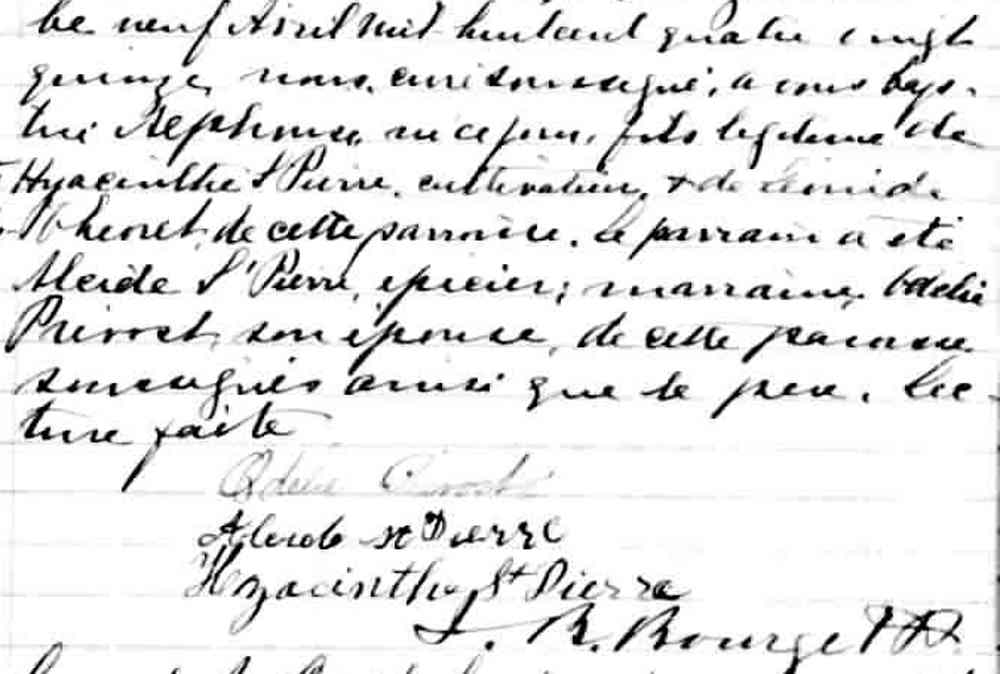 Le neuf Avril mil huit cent quatre vingt
quinze, nous, curé soussigné, avons bap-
tisé Alphonse, né ce jour, fils légitime de
Hyacinthe St Pierre, cultivateur, & de
de cette paroisse. Le parrain a été
Alcide St Pierre, épicier; marraine, Odélie
Prévost, son épouse, de cette paroisse
soussignés ainsi que le père. Lec-
ture faite
Odélie Prévost
Alcide St Pierre
Hyacinthe St Pierre
J. B. Bourget